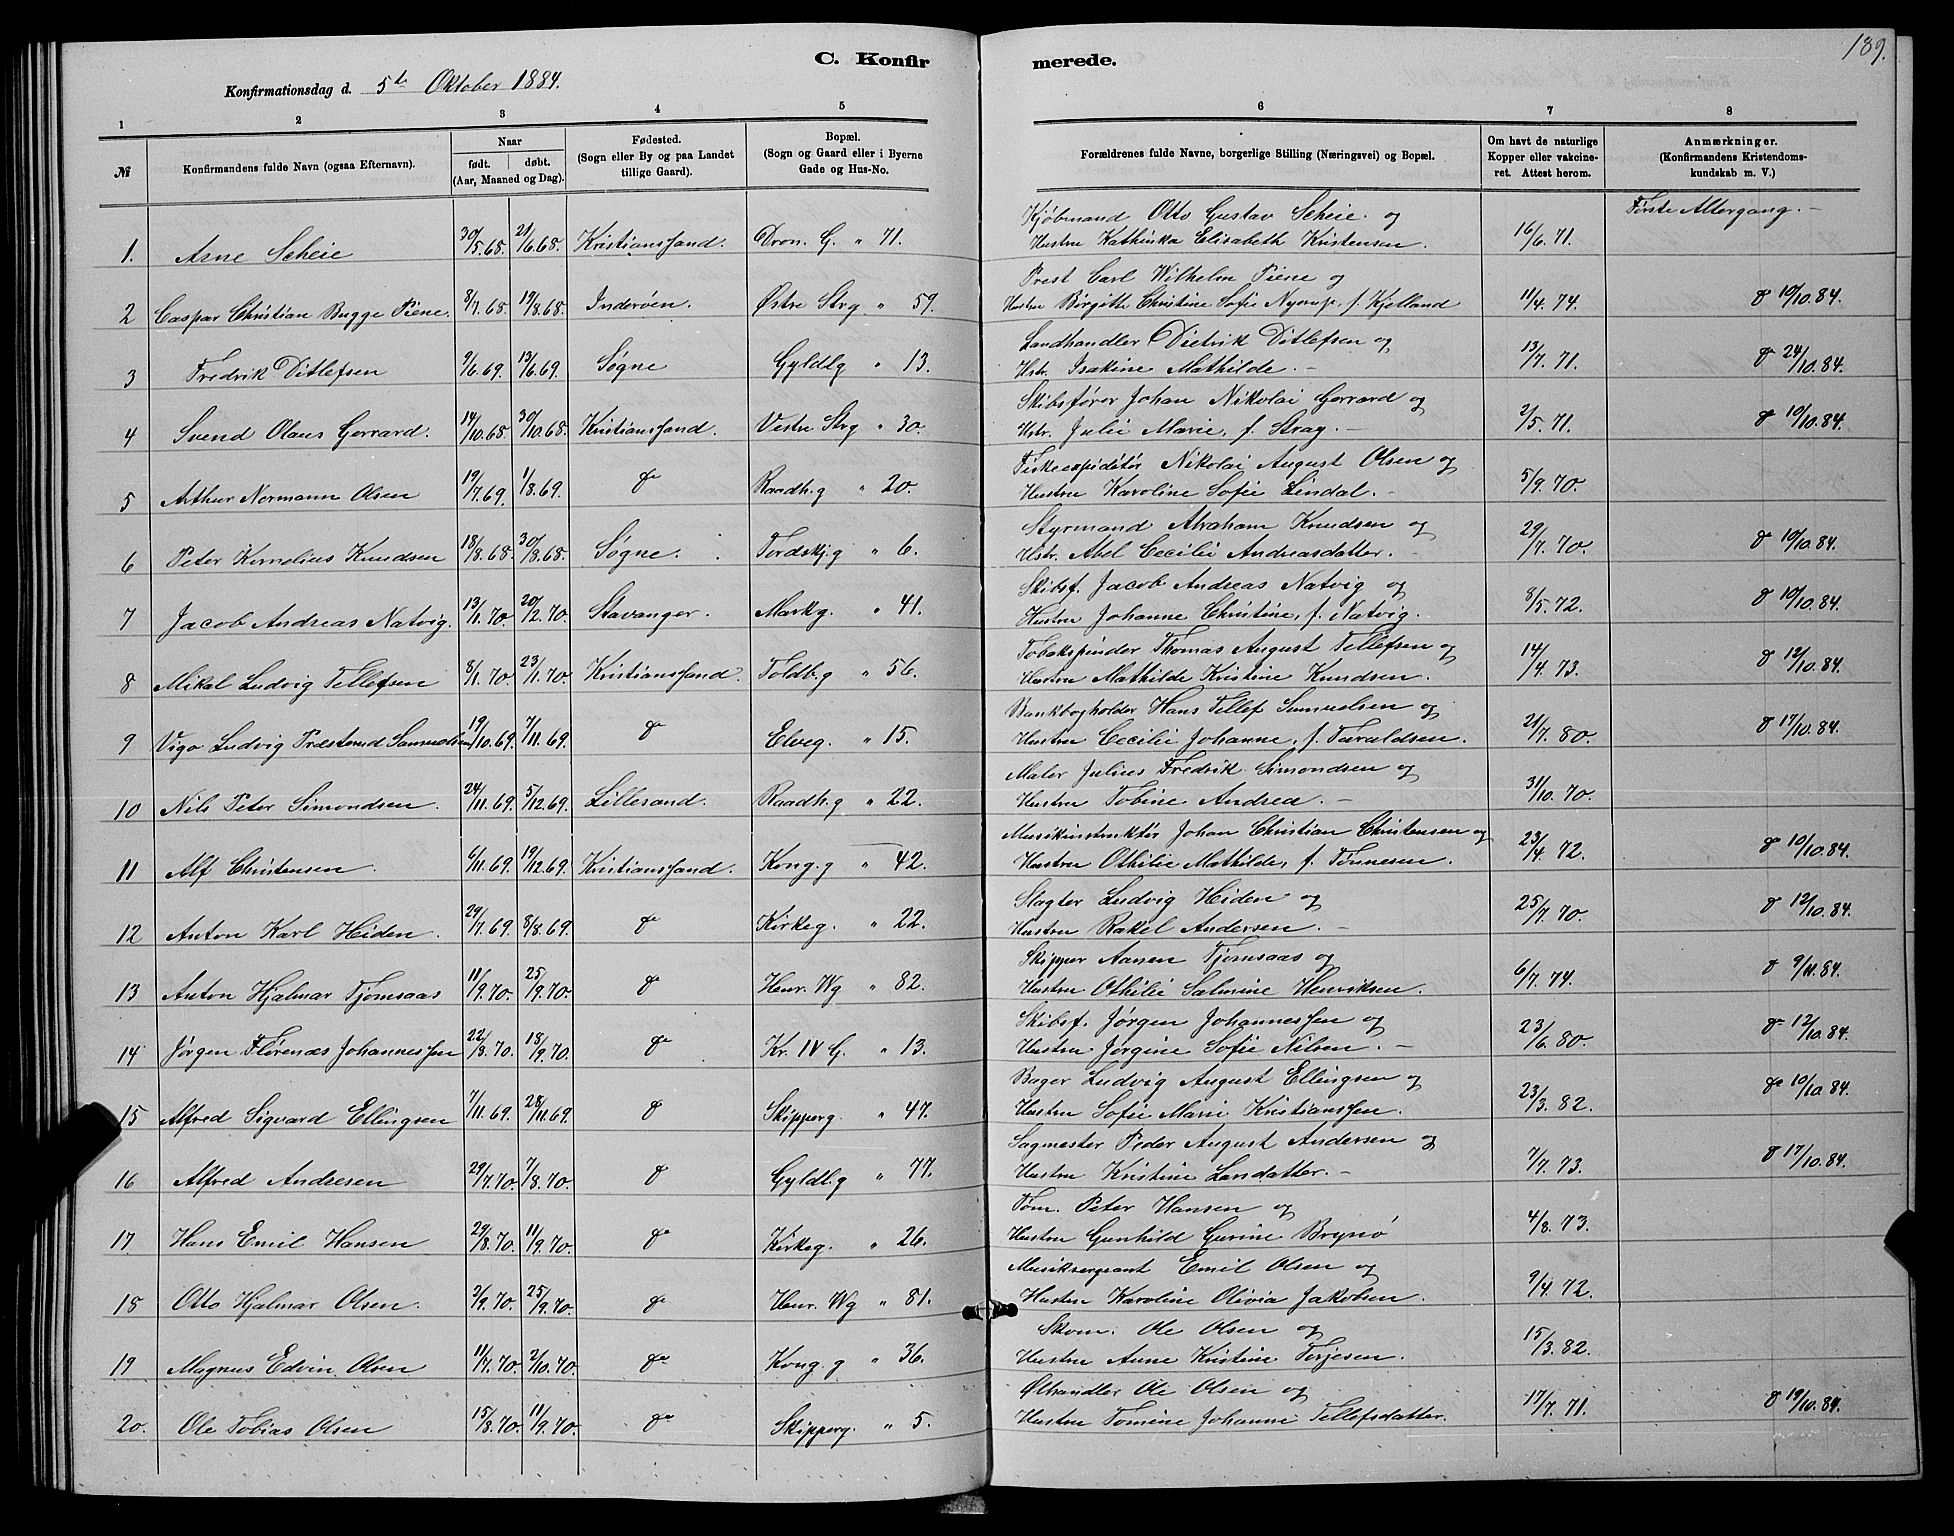 C. Konfirmerede.
189.
Konfirmationsdag d. 5te Oktober 1884.
1 2 3 4 5 6 7 8
№ Konfirmandens fulde Navn (ogsaa Efternavn). Naar født. døbt. (Aar, Maaned og Dag). Fødested. (Sogn eller By og paa Landet tillige Gaard). Bopæl. (Sogn og Gaard eller i Byerne Gade og Hus-No. Forældrenes fulde Navne, borgerlige Stilling (Næringsvei) og Bopæl. Om havt de naturlige Kopper eller vakcineret. Attest herom. Anmærkninger. (Konfirmandens Kristendomskundskab m. V.)
Kjøbmand Otto Gustav Scheie og Første Altergang. –
1. Arne Scheie 30/5.68. 21/6.68. Kristianssand. Dron. G. " 71. Hustru Kathinka Elisabeth Kristensen. 16/6.71.
Prest Carl Wilhelm Piene og
2 Caspar Christian Bugge Piene. 8/7.68. 19/8.68. Inderøen. Østre Strg " 59. Hustru Birgitte Christine Sofie Nyerup, f. Kjelland 11/4.74. d 10/10.84.
Landhandler Dietrik Ditlefsen og
3 Fredrik Ditlefsen 9/6.69. 13/6.69. Søgne Gyldlg " 13. Hstr. Isakine Mathilde. – 13/7.71. do 24/10.84.
Skibsfører Johan Nikolai Gerrard og
4 Svend Olaus Gerrard. 14/10.68. 30/10.68. Kristianssand. Vestre Strg " 30. Hstr. Julie Marie, f. Stray. – 2/5.71. d 10/10.84.
Fiskeexpiditør Nikolai August Olsen og
5 Arthur Normann Olsen 19/7.69. 1/8.69. do Raadh.g " 20. Hustru Karoline Sofie Lindal. – 5/9.70.
Styrmand Abraham Knudsen og
6 Peter Kornelius Knudsen 18/8.68. 30/8.68. Søgne. Tordskj.g " 6. Hstr. Abel Cecilie Andreasdatter. – 29/7.70. d 10/10.84.
Skibsf. Jacob Andreas Natvig og
7 Jacob Andreas Natvig. 13/1.70. 20/2.70. Stavanger. Markg. " 41. Hustru Johanne Christine, f. Natvig. 8/5.72. d 10/10.84.
Tobakspinder Thomas August Tellefsen og
8 Mikal Ludvig Tellefsen 8/1.70. 23/1.70. Kristianssand. Toldb.g " 56. Hustru Mathilde Kristine Knudsen. 14/4.73. d 12/10.84.
Bankbogholder Hans Tellef Samuelsen og
9 Vigo Ludvig Præsterud Samuelsen 19/10.69. 7/11.69. d Elveg. " 15. Hustru Cecilie Johanne, f. Taraldsen. 21/7.80. d 17/10.84.
Maler Julius Fredrik Simondsen og
10 Nils Peter Simondsen. 24/11.69. 5/12.69. Lillesand. Raadh.g " 22. Hustru Tobine Andrea. – 31/10.70.
Musikinstruktør Johan Christian Christensen og
11 Alf Christensen. 6/11.69. 19/12.69. Kristianssand. Kong.g " 42. Hustru Othilie Mathilde, f. Tønnesen. 23/4.72. d 10/10.84.
Slagter Ludvig Heiden og
12 Anton Karl Heiden. 29/7.69. 8/8.69. d Kirkeg. " 22. Hustru Rakel Andersen. – 25/7.70. d 12/10.84.
Skipper Aanen Tjomsaas og
13 Anton Hjalmar Tjomsaas 11/9.70. 25/9.70. d Henr. Wg " 82. Hustru Othilie Salmine Henriksen. 6/7.74. d 9/11.84.
Skibsf. Jørgen Johannessen og
14 Jørgen Florenæs Johannessen 22/8.70. 18/9.70. do Kr. IV G. " 13. Hustru Jørgine Sofie Nilsen. – 23/6.80. do 12/10.84.
Bager Ludvig August Ellingsen og
15 Alfred Sigvard Ellingsen 7/11.69. 28/11.69 d Skipperg. " 47. Hustru Sofie Marie Kristianssen. 23/3.82. do 10/10.84
Sagmester Peder August Andersen og
16 Alfred Andresen 29/7.70. 7/8.70. d Gyldl.g " 77. Hustru Kristine Larsdatter. – 7/7.73. d 17/10.84.
Tøm. Peter Hansen og
17 Hans Emil Hansen 29/8.70. 11/9.70. do Kirkeg. " 26. Hustru Gunhild Gurine Brynø 4/8.73.
Musiksergeant Emil Olsen og
18 Otto Hjalmar Olsen. 2/9.70. 25/9.70. do Henr. Wg " 81. Hustru Karoline Olivia Jakobsen. 9/4.72.
Skom. Ole Olsen og
19 Magnus Edvin Olsen 11/7.70. 2/10.70. do Kong.g " 36. Hustru Anne Kristine Terjesen. 15/3.82.
Ølhandler Ole Olsen og
20. Ole Tobias Olsen 15/8.70. 11/9.70. do Skipperg. " 5. Hustru Tomine Johanne Tellefsdatter. 17/7.71. d 19/10.84.